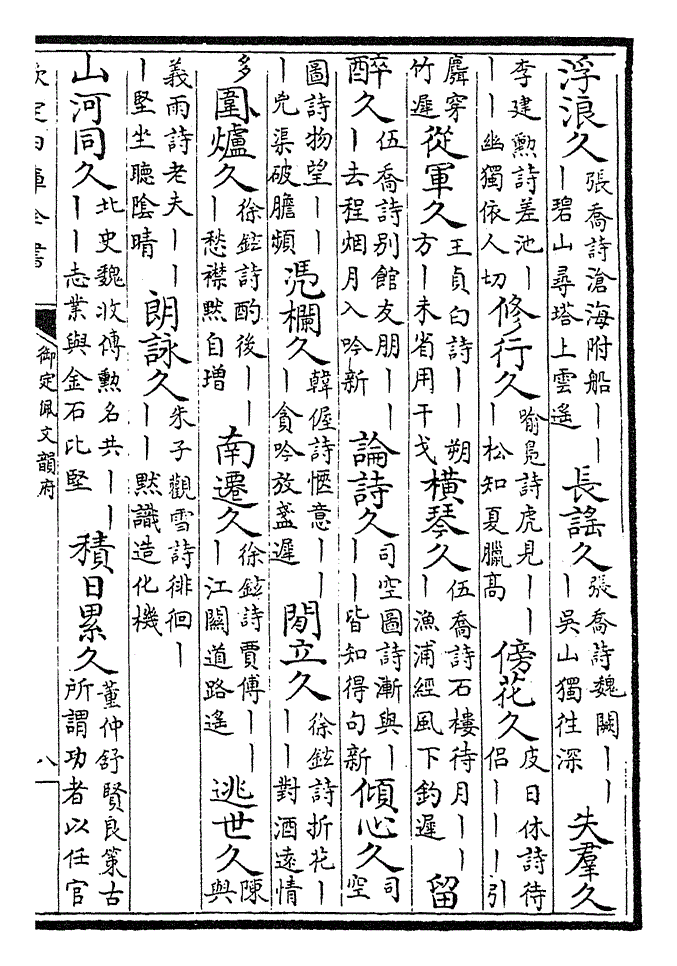 浮浪久 張喬詩滄海附船丨丨丨碧山尋塔上雲遙 長謠久 張喬詩魏闕丨丨丨吳山獨徃深 失羣久
李建勲詩差池丨丨丨幽獨依人切 修行久 喻鳬詩虎見丨丨丨松知夏臘高 傍花久 皮日休詩待侣丨丨丨引
麛穿竹遲 從軍久 王貞白詩丨丨朔方丨未省用干戈 橫琴久 伍喬詩石樓待月丨丨丨漁浦經風下釣遲 留
醉久 伍喬詩别館友朋丨丨丨去程烟月入吟新 論詩久 司空圖詩漸與丨丨丨皆知得句新 傾心久 司空
圖詩物望丨丨丨兇渠破膽頻 凭欄久 韓偓詩愜意丨丨丨貪吟放盞遲 閒立久 徐鉉詩折花丨丨丨對酒遠情
多 圍爐久 徐鉉詩酌後丨丨丨愁襟黙自増 南遷久 徐鉉詩賈傅丨丨丨江關道路遙 逃世久 陳與
義雨詩老夫丨丨丨堅坐聽陰晴 朗詠久 朱子觀雪詩徘徊丨丨丨默識造化機
山河同久 北史魏收傳勲名共丨丨丨丨志業與金石比堅 積日累久 董仲舒賢良策古所謂功者以任官
欽定四庫全書 御定佩文韻府 八